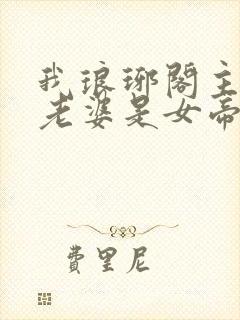 我琅琊閣主
老婆是女帝
費里尼